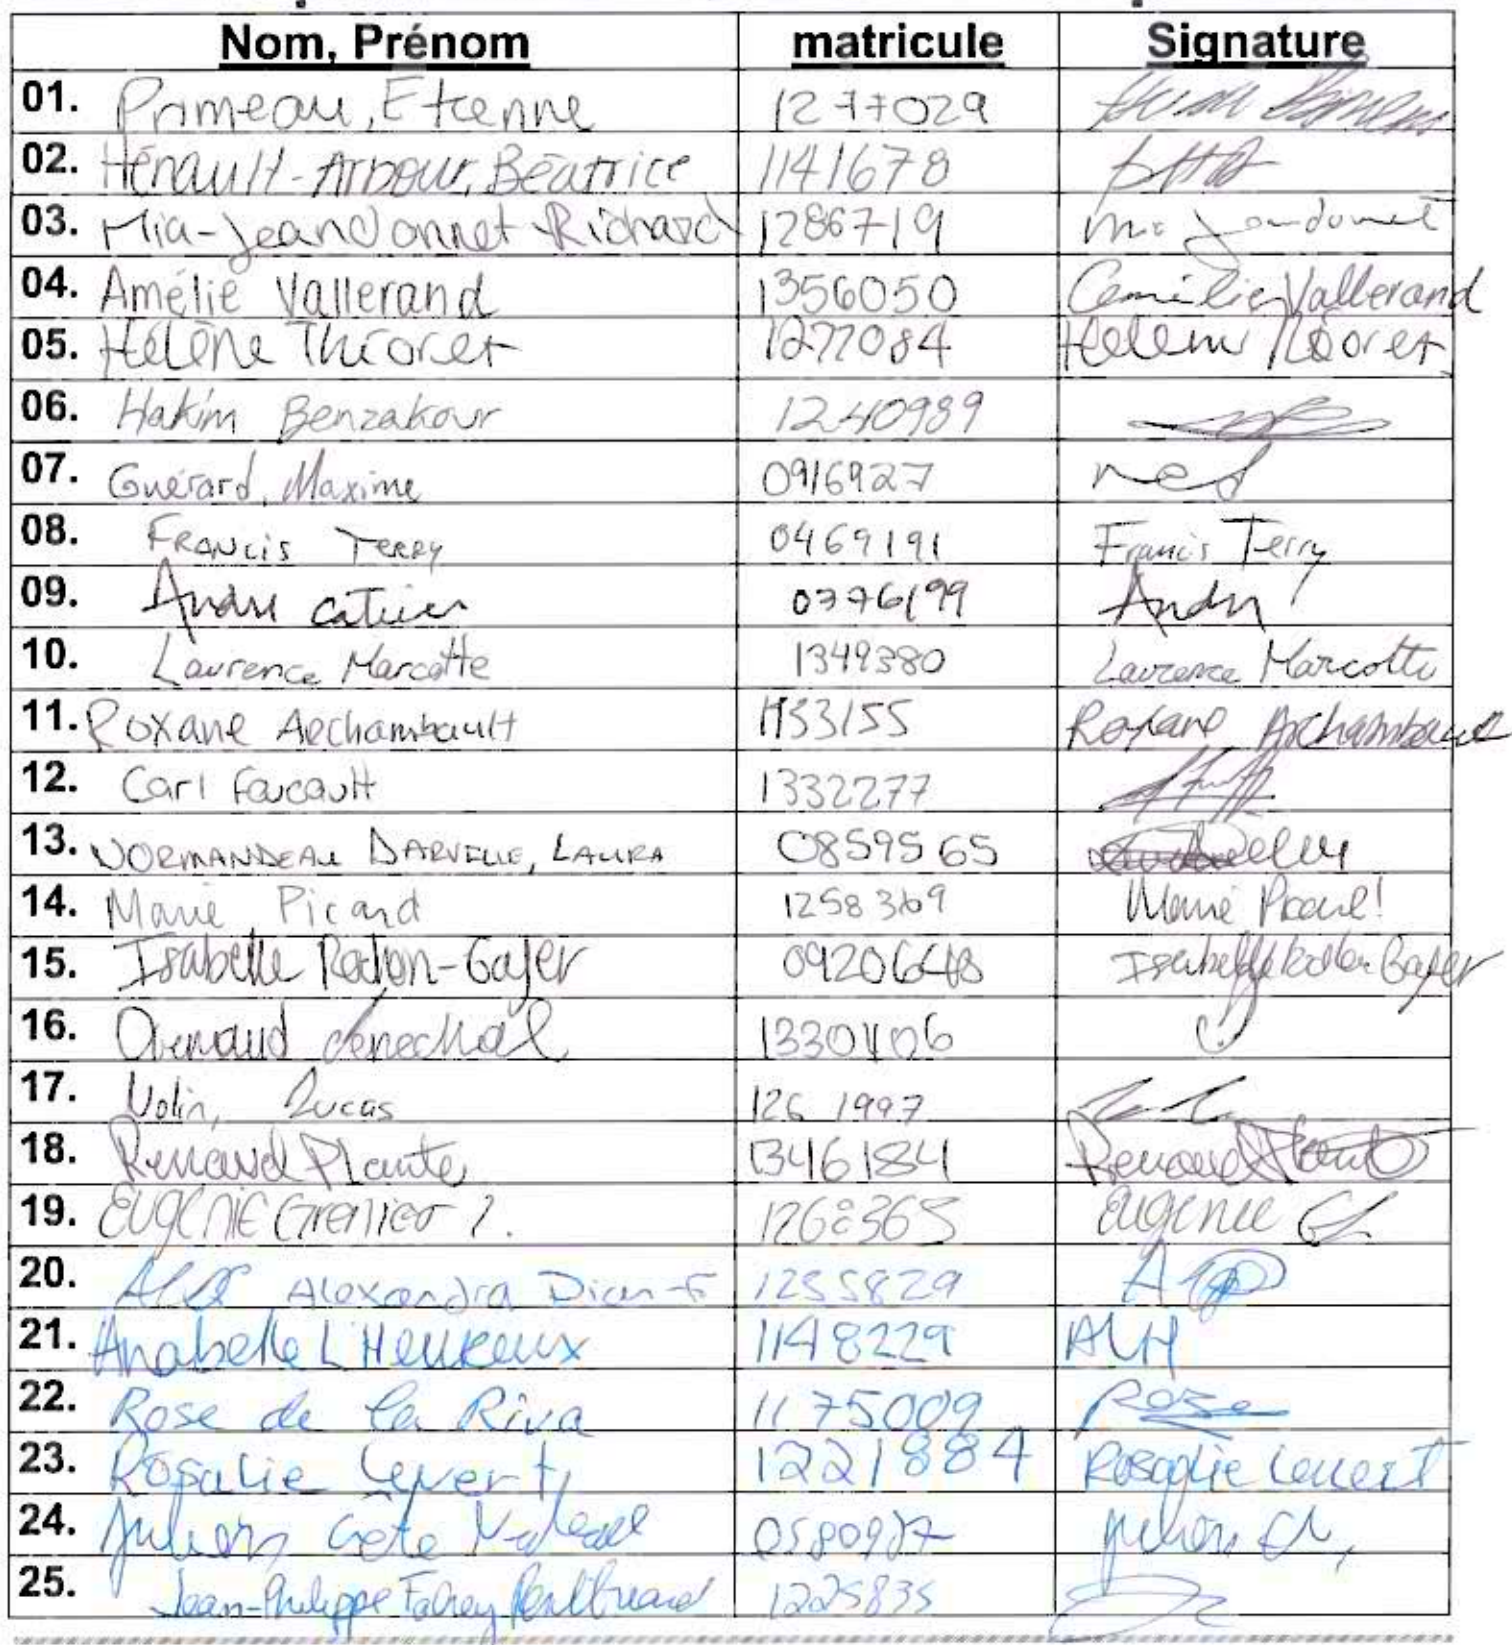 Nom, Prénom matricule Signature
01. Primeau, Etienne 1277029
02. Hénault-Arbour, Béatrice 1141678
03. Mia-Jeandonnet-Richard 1286719
04. Amélie Vallerand 1356050 Amélie Vallerand
05. Hélène Théoret 1277084 Hélène Théoret
06. Hakim Benzakour 1240989
07. Guérard, Maxime 0916927
08. FRANCIS TERRY 0469191 Francis Terry
09. Andre 0776199 Andr
10. Laurence Marcotte 1349380 Laurence Marcotte
11. Roxane Archambault 1133155 Roxane Archambault
12. Carl Foucault 1332277
13. NORMANDEAU DARVEUE, LAURA 0859565
14. Marie Picard 1258369 Marie Picard!
15. Isabelle 0920648 Isabelle
16. Arnaud Sénéchal
17. Lucas 1261997
18. Renaud Plante 1346184 Renaud Plante
19. EUGÉNIE Grenier 1268365 Eugénie
20. Alexandra 1255829
21. Anabelle L'Heureux 1148229 ALH
22. Rose de la Riva 1175009 Rose
23. Rosalie Levert 1221884 Rosalie Levert
24. Julien Côté 0580987 Julien
25. Jean-Philippe Fahey 1225835